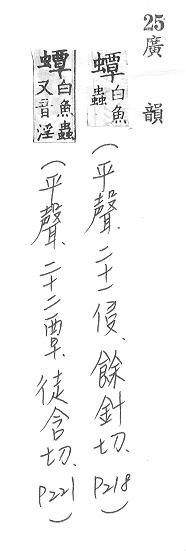 25廣韻
蟫白魚蟲(平聲、二十一侵、餘針切、P218)
蟫白魚蟲又音淫(平聲、二十二覃、徒含切、P221)